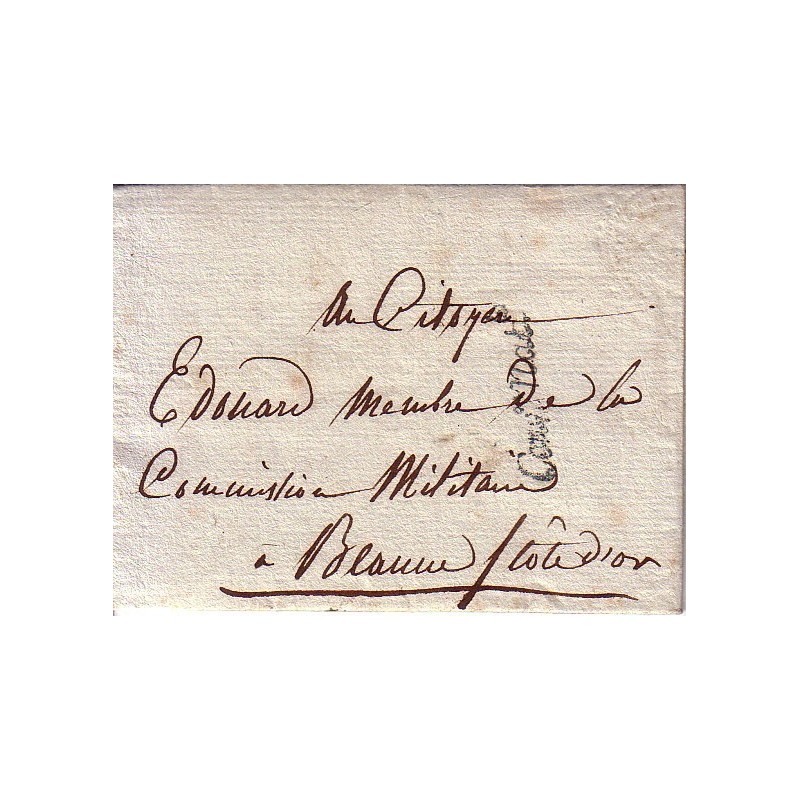 Au Citoyen
Edouard membre de la
Commission Militaire
à Beaune / côte d'or